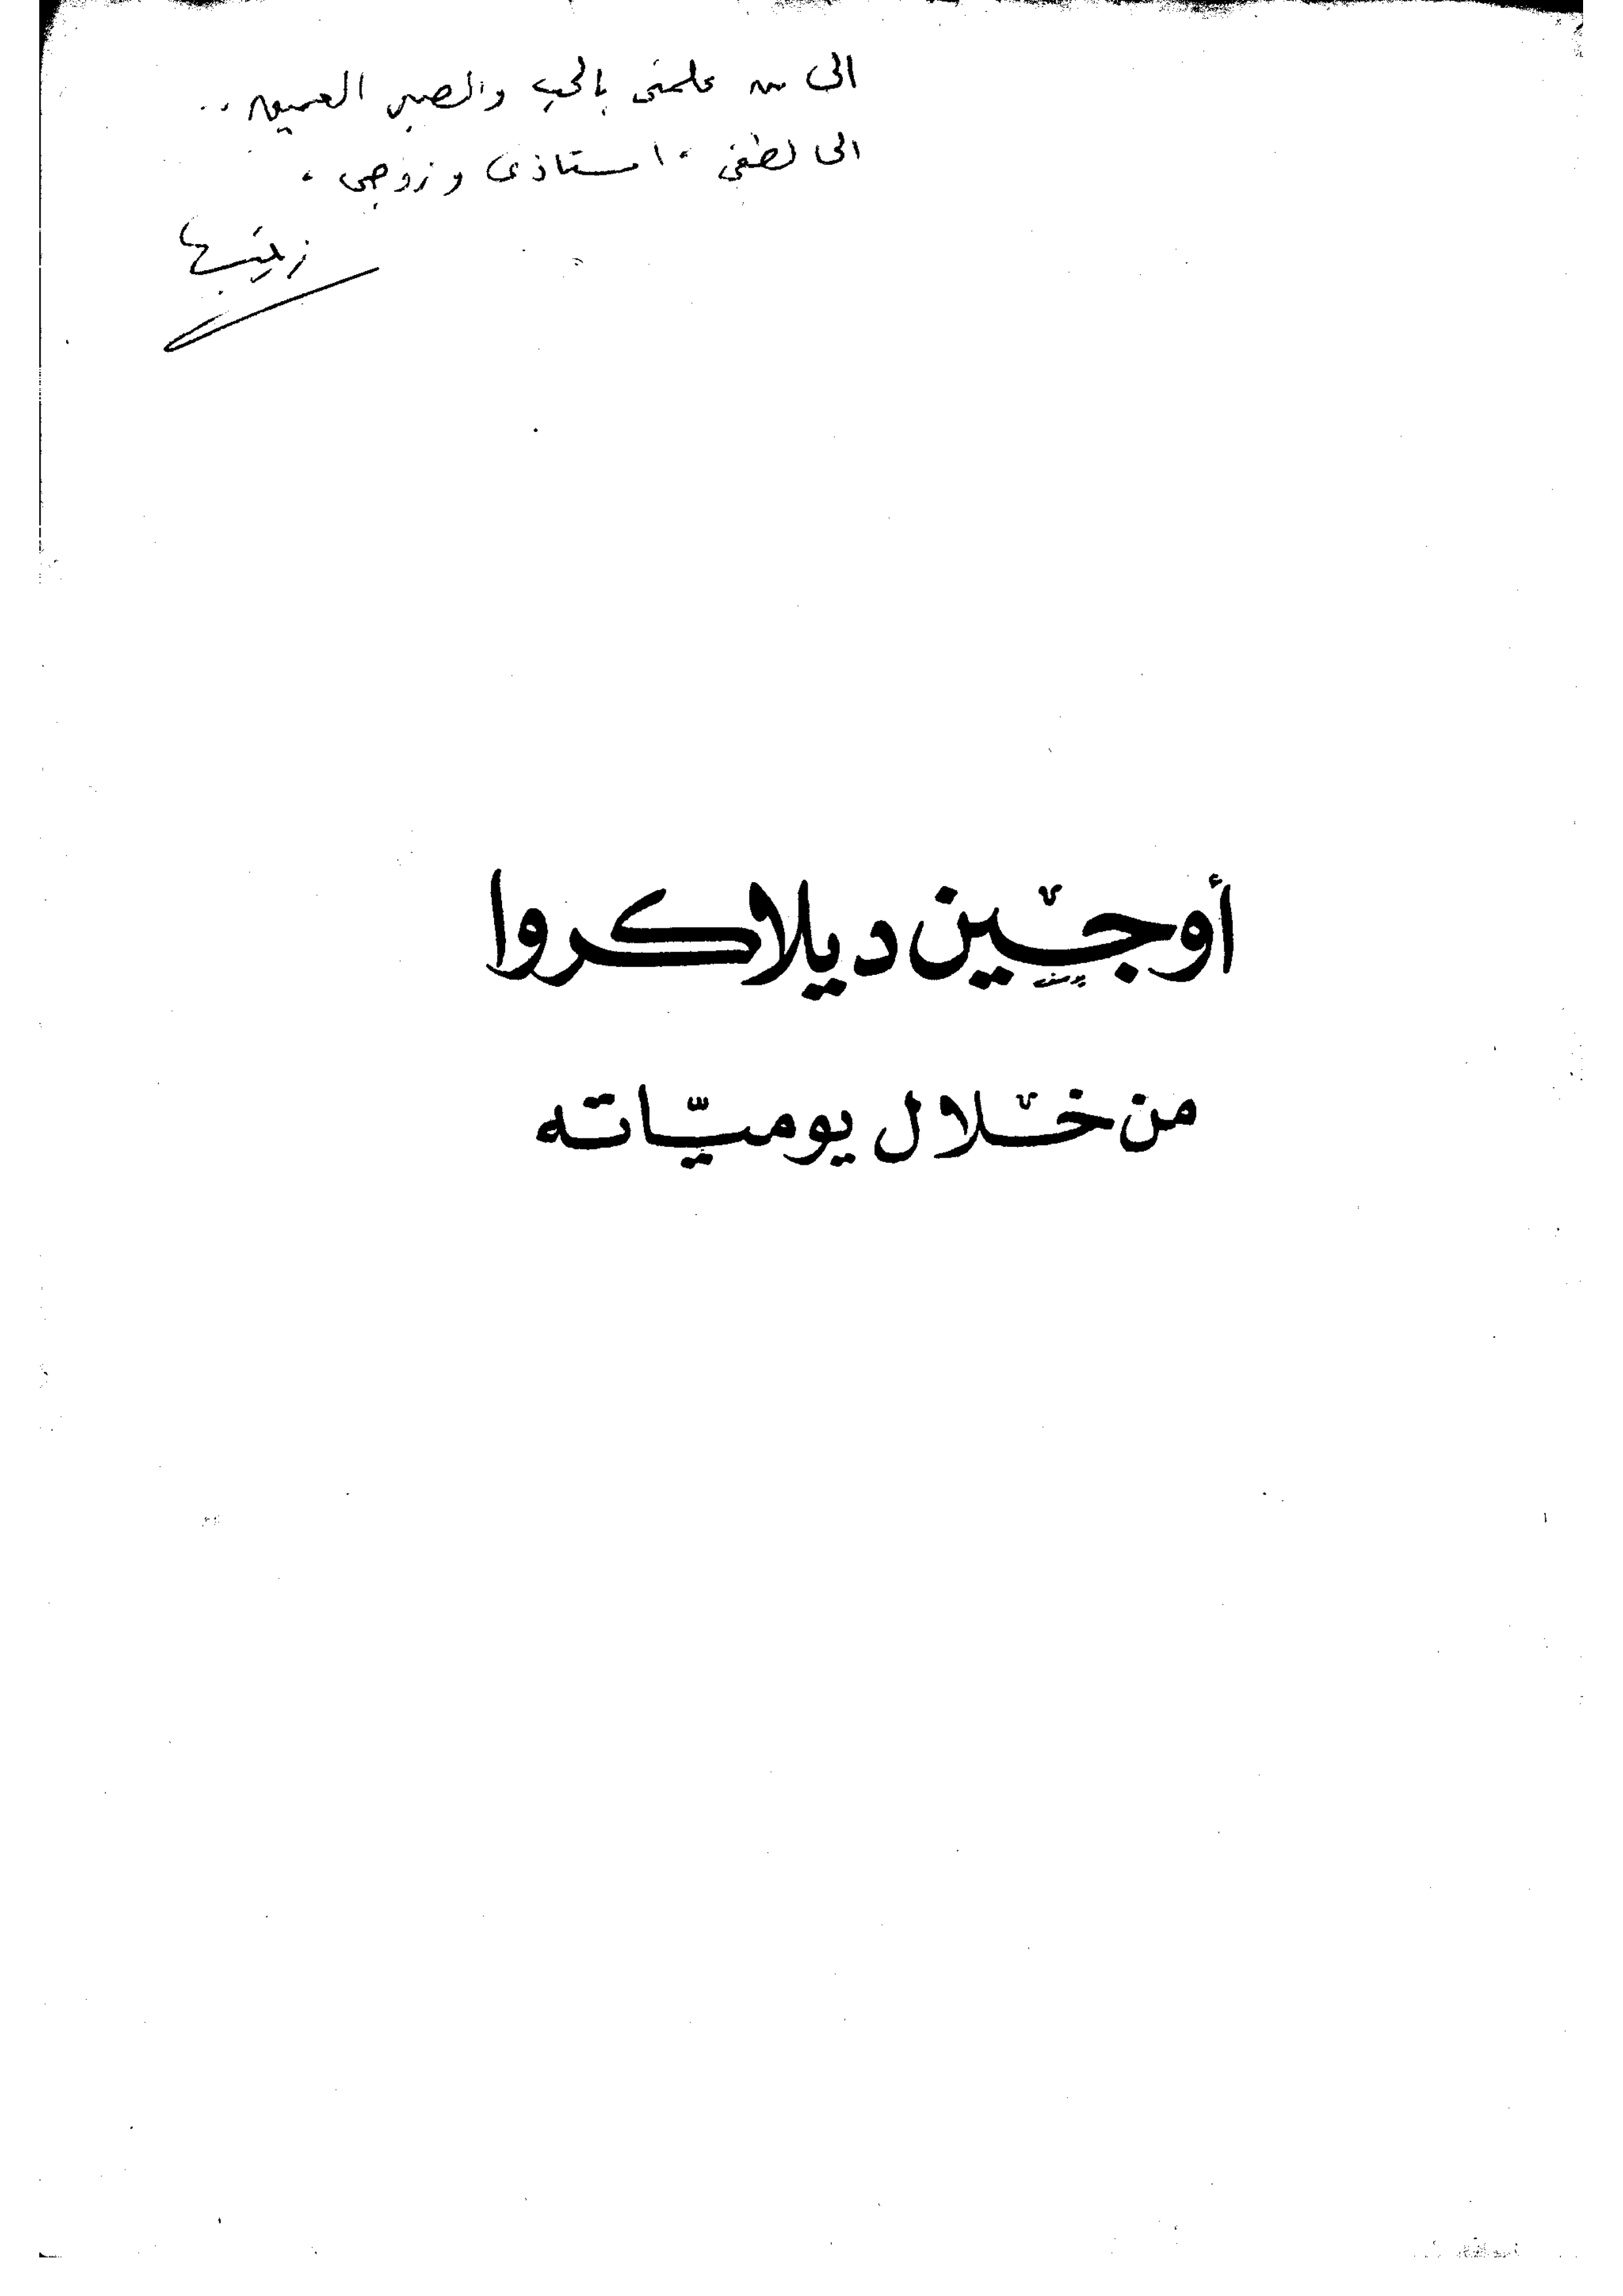 الى من علمنى بالحب والصبر العميق ..
الى لطفى ، استاذى و زوجى .
زينب
أوجين ديلاكروا
من خلال يومياته